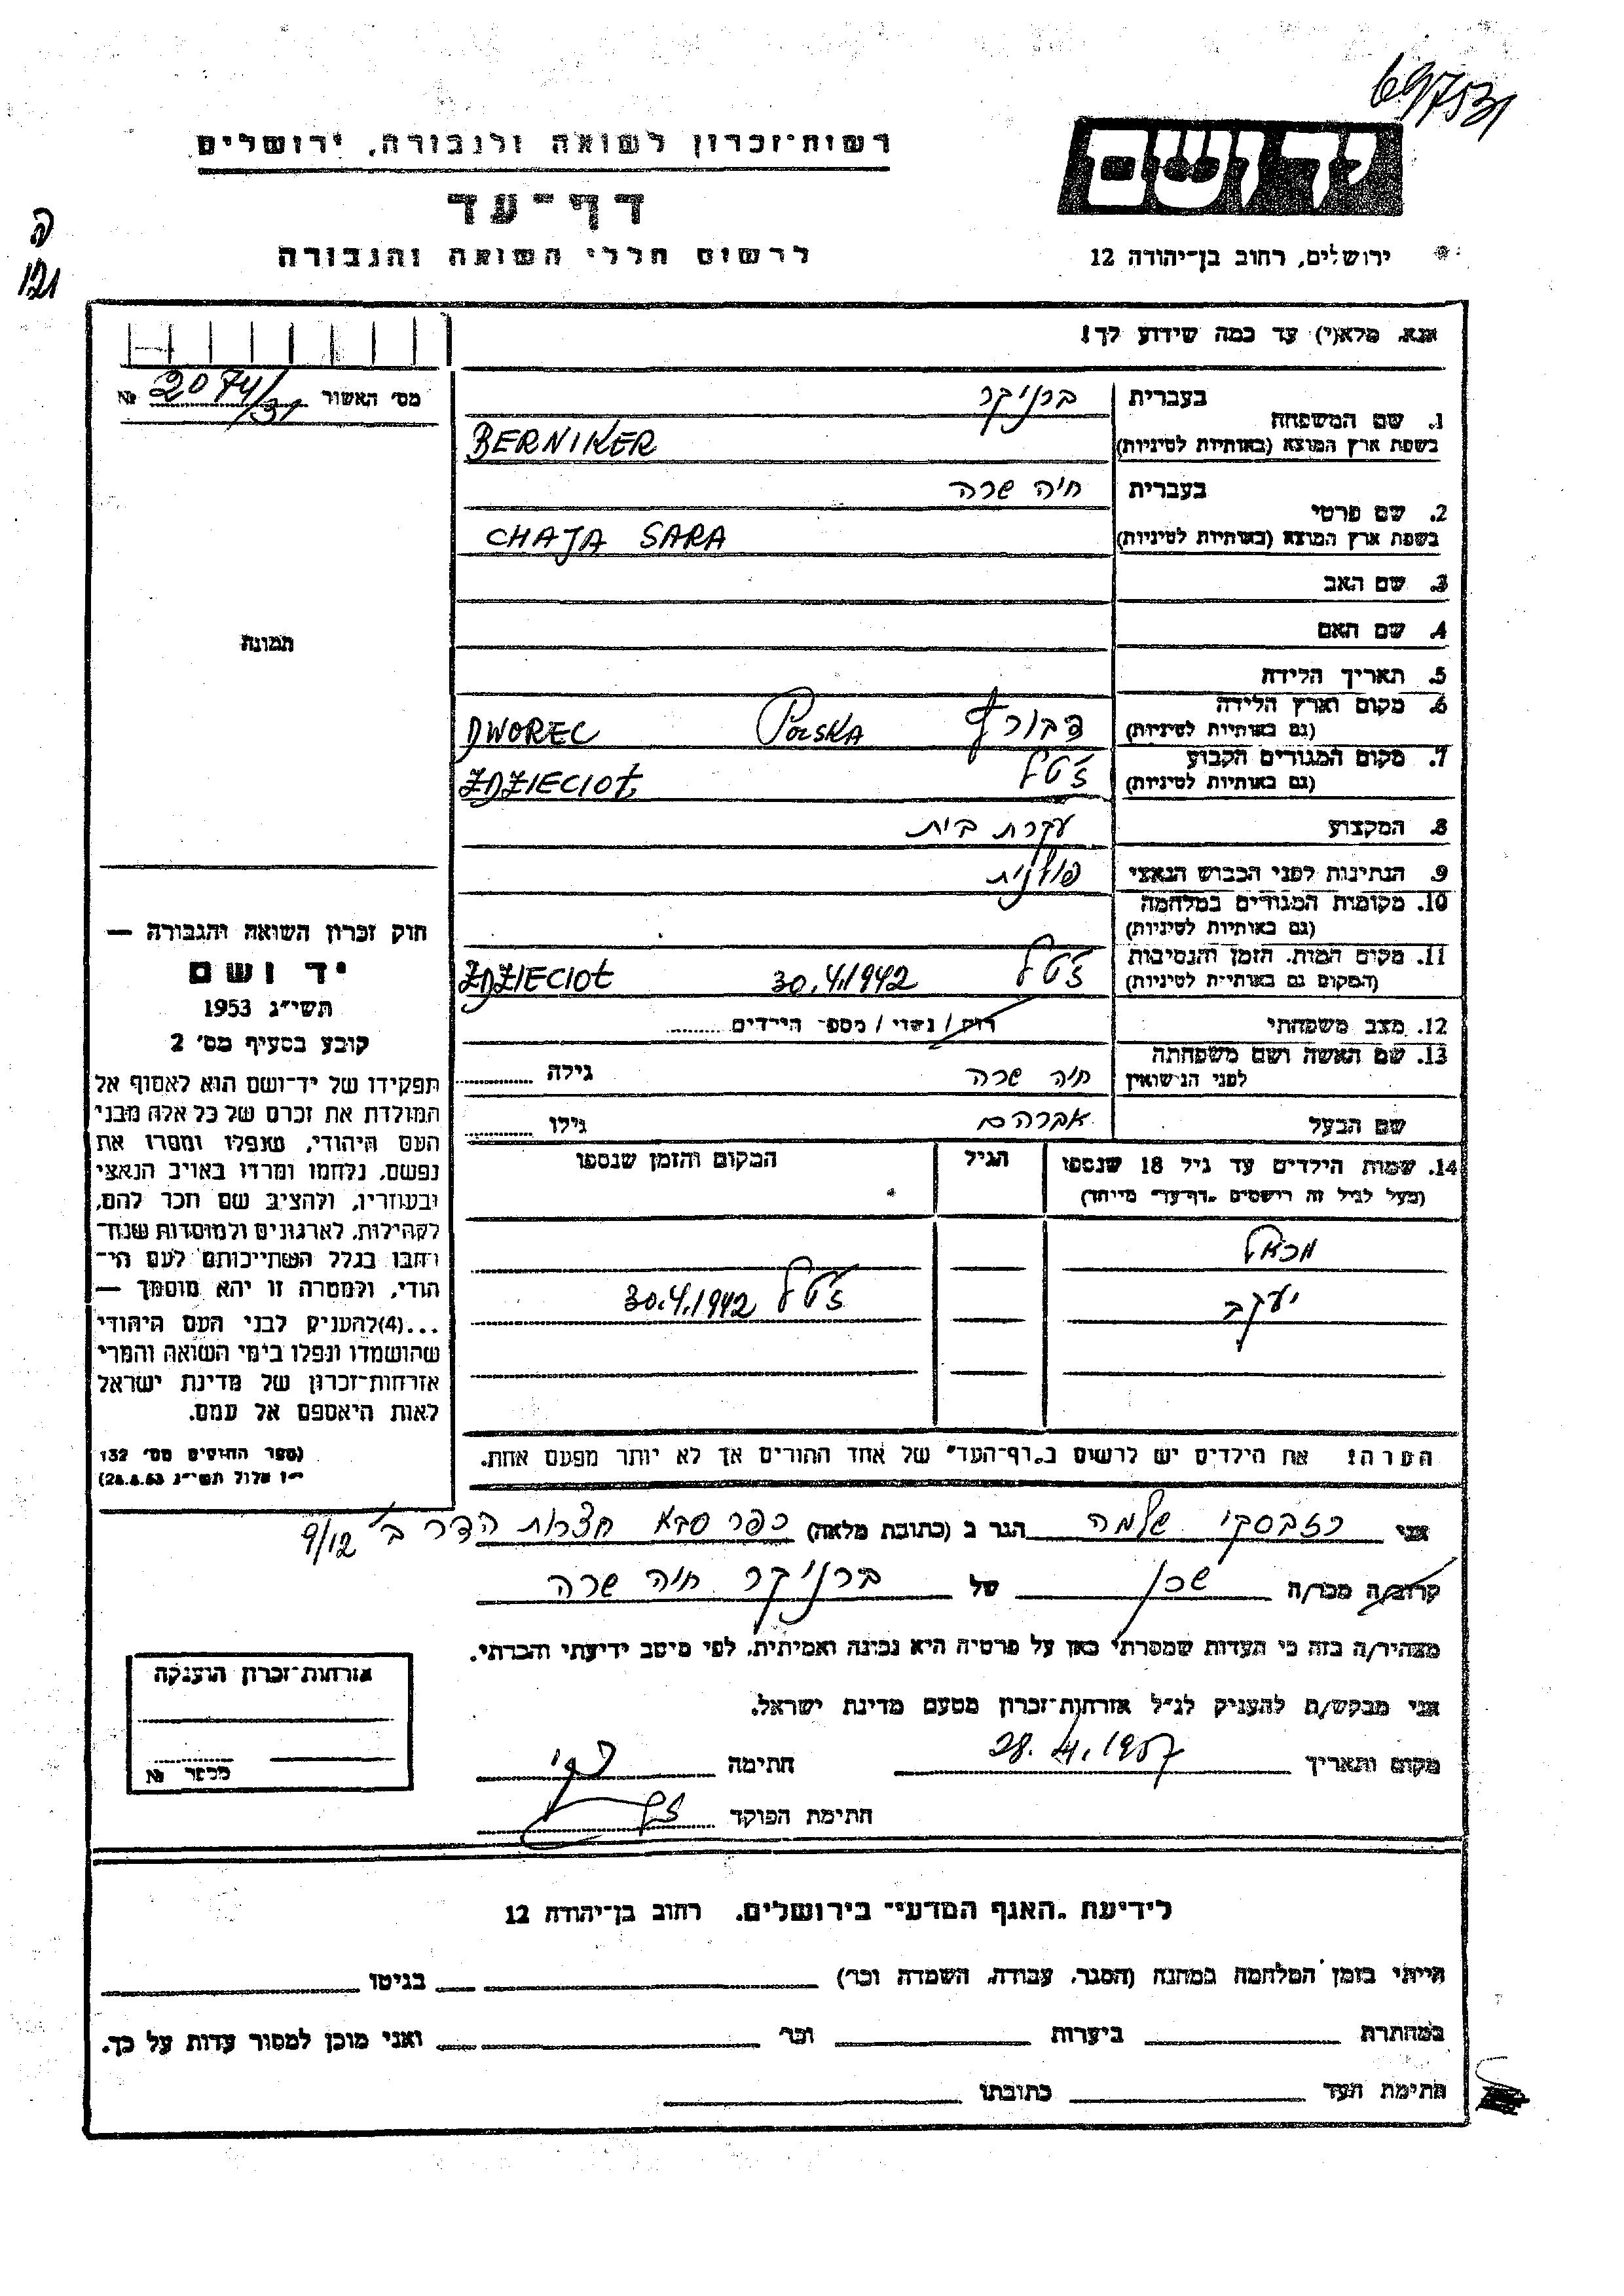 697531
רשות־זכרון לשואה ולגבורה, ירושלים
יד ושם
דף־עד
לרשום חללי השואה והגבורה
ירושלים, רחוב בן־יהודה 12
121
אנא, מלא(י) עד כמה שידוע לך!
מס׳ האשור 2074/31 №
1. שם המשפחה
בעברית ברניקר
בשפת ארץ המוצא (באותיות לטיניות) BERNIKER
2. שם פרטי
בעברית חיה שרה
בשפת ארץ המוצא (באותיות לטיניות) CHAJA SARA
3. שם האב
4. שם האם
תמונה
5. תאריך הלידה
6. מקום וארץ הלידה
(גם באותיות לטיניות) דבורץ Polska DWOREC
7. מקום המגורים הקבוע
(גם באותיות לטיניות) ז׳טל ZDZIECIOŁ
8. המקצוע עקרת בית
9. הנתינות לפני הכבוש הנאצי פולנית
10. מקומות המגורים במלחמה
(גם באותיות לטיניות)
11. מקום המות, הזמן והנסיבות
(המקום גם באותיות לטיניות) ז׳טל 30.4.1942 ZDZIECIOŁ
12. מצב משפחתי רווק / נשוי / מספר הילדים
13. שם האשה ושם משפחתה
לפני הנישואין חיה שרה גילה
שם הבעל אברהם גילו
14. שמות הילדים עד גיל 18 שנספו הגיל המקום והזמן שנספו
(מעל לגיל זה רושמים „דף־עד״ מיוחד)
מכאל
יעקב ז׳טל 30.4.1942
הערה: את הילדים יש לרשום ב„דף־העד״ של אחד ההורים אך לא יותר מפעם אחת.
חוק זכרון השואה והגבורה —
יד ושם
תשי״ג 1953
קובע בסעיף מס׳ 2
תפקידו של יד־ושם הוא לאסוף אל
המולדת את זכרם של כל אלה מבני
העם היהודי, שנפלו ומסרו את
נפשם, נלחמו ומרדו באויב הנאצי
ובעוזריו, ולהציב שם וזכר להם,
לקהילות, לארגונים ולמוסדות שנח־
רבו בגלל השתייכותם לעם הי־
הודי, ולמטרה זו יהא מוסמך —
...(4)להעניק לבני העם היהודי
שהושמדו ונפלו בימי השואה והמרי
אזרחות־זכרון של מדינת ישראל
לאות היאספם אל עמם.
(ספר החוקים מס׳ 132
י״ז אלול תשי״ג 28.8.53)
אני רזבסקי שלמה הגר ב (כתובת מלאה) כפר סבא חצרות הדר ב׳ 9/12
קרוב/ה מכר/ה שכן של ברניקר חיה שרה
מצהיר/ה בזה כי העדות שמסרתי כאן על פרטיה היא נכונה ואמיתית, לפי מיטב ידיעתי והכרתי.
אני מבקש/ת להעניק לנ״ל אזרחות־זכרון מטעם מדינת ישראל.
מקום ותאריך 28.4.1957 חתימה
חתימת הפוקד
אזרחות־זכרון הוענקה
מספר №
לידיעת „האגף המדעי״ בירושלים, רחוב בן־יהודה 12
הייתי בזמן המלחמה במחנה (הסגר, עבודה, השמדה וכר) בגיטו
במחתרת ביערות וכר ואני מוכן למסור עדות על כך.
חתימת העד כתובתו